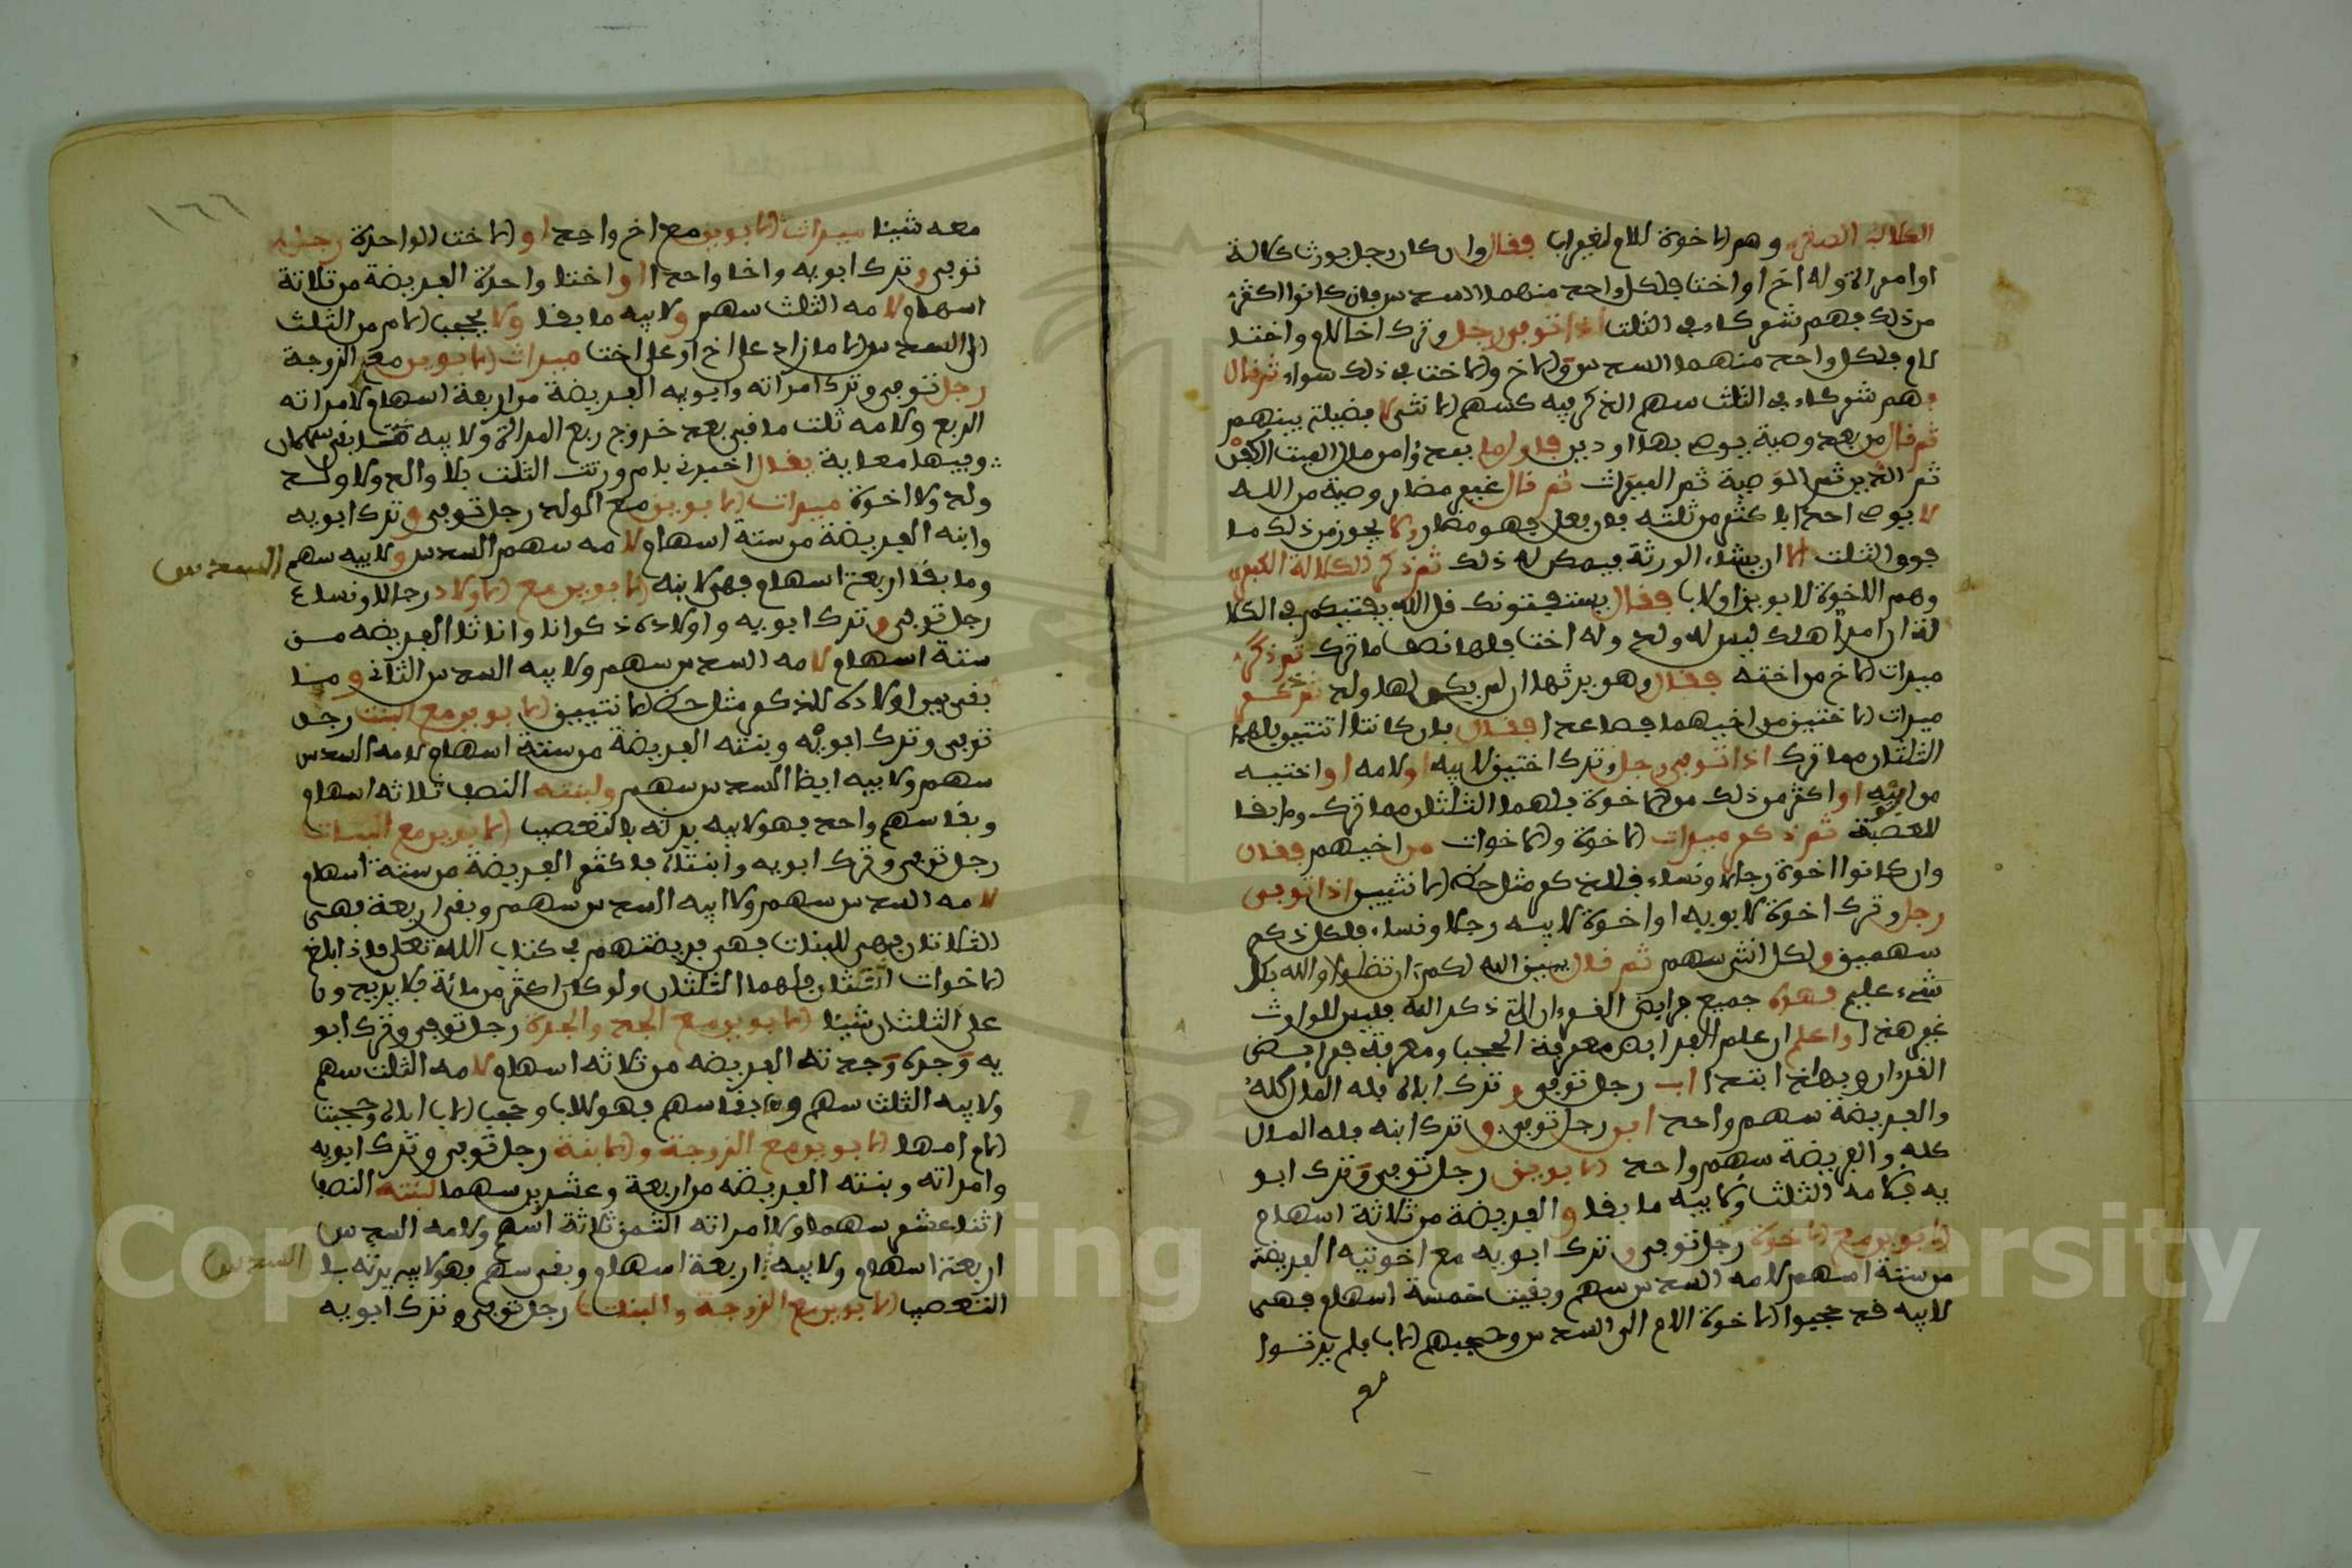 الكلالة الصغرى وهم الاخوة للام لغير اب فقال وان كان رجل يورث كلالة
او امراة وله اخ او اخت فلكل واحد منهما السدس فان كانوا اكثر
من ذلك فهم شركاء في الثلث اذا توفى رجل وترك اخا لام واختا
لام فلكل واحد منهما السدس والاخ والاخت في ذلك سواء ثم قال
فهم شركاء في الثلث سهم الذكر فيه كسهم الانثى لا فضيلة بينهم
ثم قال من بعد وصية يوصى بها او دين فاول ما يبدؤا من مال الميت الكفن
ثم الدين ثم الوصية ثم الميراث ثم قال غير مضار وصية من الله
لا يوص احد باكثر من ثلثه فان فعل فهو مضار ولا يجوز من ذلك ما
فوق الثلث الا ان يشاء الورثة فيمكن له ذلك ثم ذكر الكلالة الكبرى
وهم الاخوة لابوين او لاب فقال يستفتونك قل الله يفتيكم في الكلا
لة ان امرؤا هلك ليس له ولد وله اخت فلها نصف ما ترك ثم ذكر
ميراث الاخ من اخته فقال وهو يرثها ان لم يكن لها ولد ثم ذكر
ميراث الاختين من اخيهما فصاعدا فقال فان كانتا اثنتين فلهما
الثلثان مما ترك اذا توفى رجل وترك اختين لابيه او لامه او اختيه
من ابيه او اكثر من ذلك من الاخوة فلهما الثلثان مما ترك وما بقا
للعصبة ثم ذكر ميراث الاخوة والاخوات من اخيهم فقال
وان كانوا اخوة رجالا ونساء فللذكر مثل حظ الانثيين اذا توفى
رجل وترك اخوة لابويه او اخوة لابيه رجالا ونساء فلكل ذكر
سهمين ولكل انثى سهم ثم قال يبين الله لكم ان تضلوا والله بكل
شيء عليم فهذه جميع فرايض القرءان التي ذكر الله فليس للوارث
غير هذا واعلم ان علم الفرايض معرفة الحجب ومعرفة فرايض
القرءان وبهاذا ابتدا اب رجل توفى وترك اباه فله المال كله
والفريضة سهم واحد ابن رجل توفى وترك ابنه فله المال
كله والفريضة سهم واحد الابوين رجل توفى وترك ابو
يه فلامه الثلث ولابيه ما بقا والفريضة من ثلاثة اسهام
الابوين مع الاخوة رجل توفى وترك ابويه مع اخوته الفريضة
من ستة اسهم لامه السدس سهم وبقيت خمسة اسهام فهى
لابيه قد حجبوا الاخوة الام الى السدس وحجبهم الاب فلم يرثوا
١٦٦
معه شيئا ميراث الابوين مع اخ واحد او الاخت الواحدة رجل
توفى وترك ابويه واخا واحدا او اختا واحدة الفريضة من ثلاثة
اسهام لامه الثلث سهم ولابيه ما بقا ولا يحجب الام من الثلث
الى السدس الا ما زاد على اخ او على اخت ميراث الابوين مع الزوجة
رجل توفى وترك امراته وابويه الفريضة من اربعة اسهام لامراته
الربع ولامه ثلث ما بقى بعد خروج ربع المراة ولابيه ما بقى سهمان
وفيها معاية يقال اخبرني بام ورثت الثلث بلا والد ولا ولد
ولد ولا اخوة ميراث الابوين مع الولد رجل توفى وترك ابويه
وابنه الفريضة من ستة اسهام لامه سهم السدس ولابيه سهم السدس
وما بقا اربعة اسهام فهى لابنه الابوين مع الاولاد رجالا ونساء
رجل توفى وترك ابويه واولاده ذكرانا واناثا الفريضة من
ستة اسهام لامه السدس سهم ولابيه السدس الثاني وما
بقى بين اولاده للذكر مثل حظ الانثيين الابوين مع البنت رجل
توفى وترك ابويه وبنته الفريضة من ستة اسهام لامه السدس
سهم ولابيه ايضا السدس سهم ولبنته النصف ثلاثة اسهام
وبقا سهم واحد فهو لابيه يرثه بالتعصيب الابوين مع البنات
رجل توفى وترك ابويه وابنتاه فاكثر الفريضة من ستة اسهام
لامه السدس سهم ولابيه السدس سهم وبقى اربعة فهى
الثلاثان فهى للبنات فهى فريضتهم في كتاب الله تعلى فاذا بلغ
الاخوات الثلثان فلهما الثلثان ولو كان اكثر من مائة فلا يزيدون
على الثلثان شيئا الابوين مع الجد والجدة رجل توفى وترك ابو
يه وجده وجدته الفريضة من ثلاثة اسهام لامه الثلث سهم
ولابيه الثلث سهم وبقا سهم فهو للاب وحجب الاب اباه وحجبت
الام امها الابوين مع الزوجة والابنة رجل توفى وترك ابويه
وامراته وبنته الفريضة من اربعة وعشرين سهما لبنته النصف
اثنا عشر سهما ولامراته الثمن ثلاثة اسهم ولامه السدس
اربعة اسهام ولابيه اربعة اسهام وبقى سهم فهو لابيه يرثه با السدس
التعصيب الابوين مع الزوجة والبنات رجل توفى وترك ابويه
Copyright © King Saud University
195